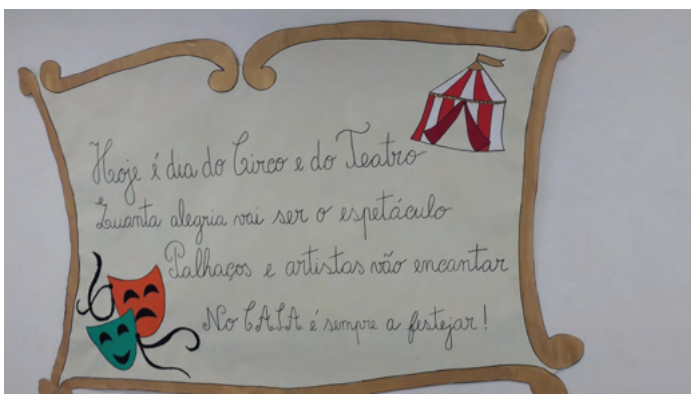 Hoje é dia do Circo e do Teatro
Quanta alegria vai ser o espetáculo
Palhaços e artistas vão encantar
No CAIA é sempre a festejar!